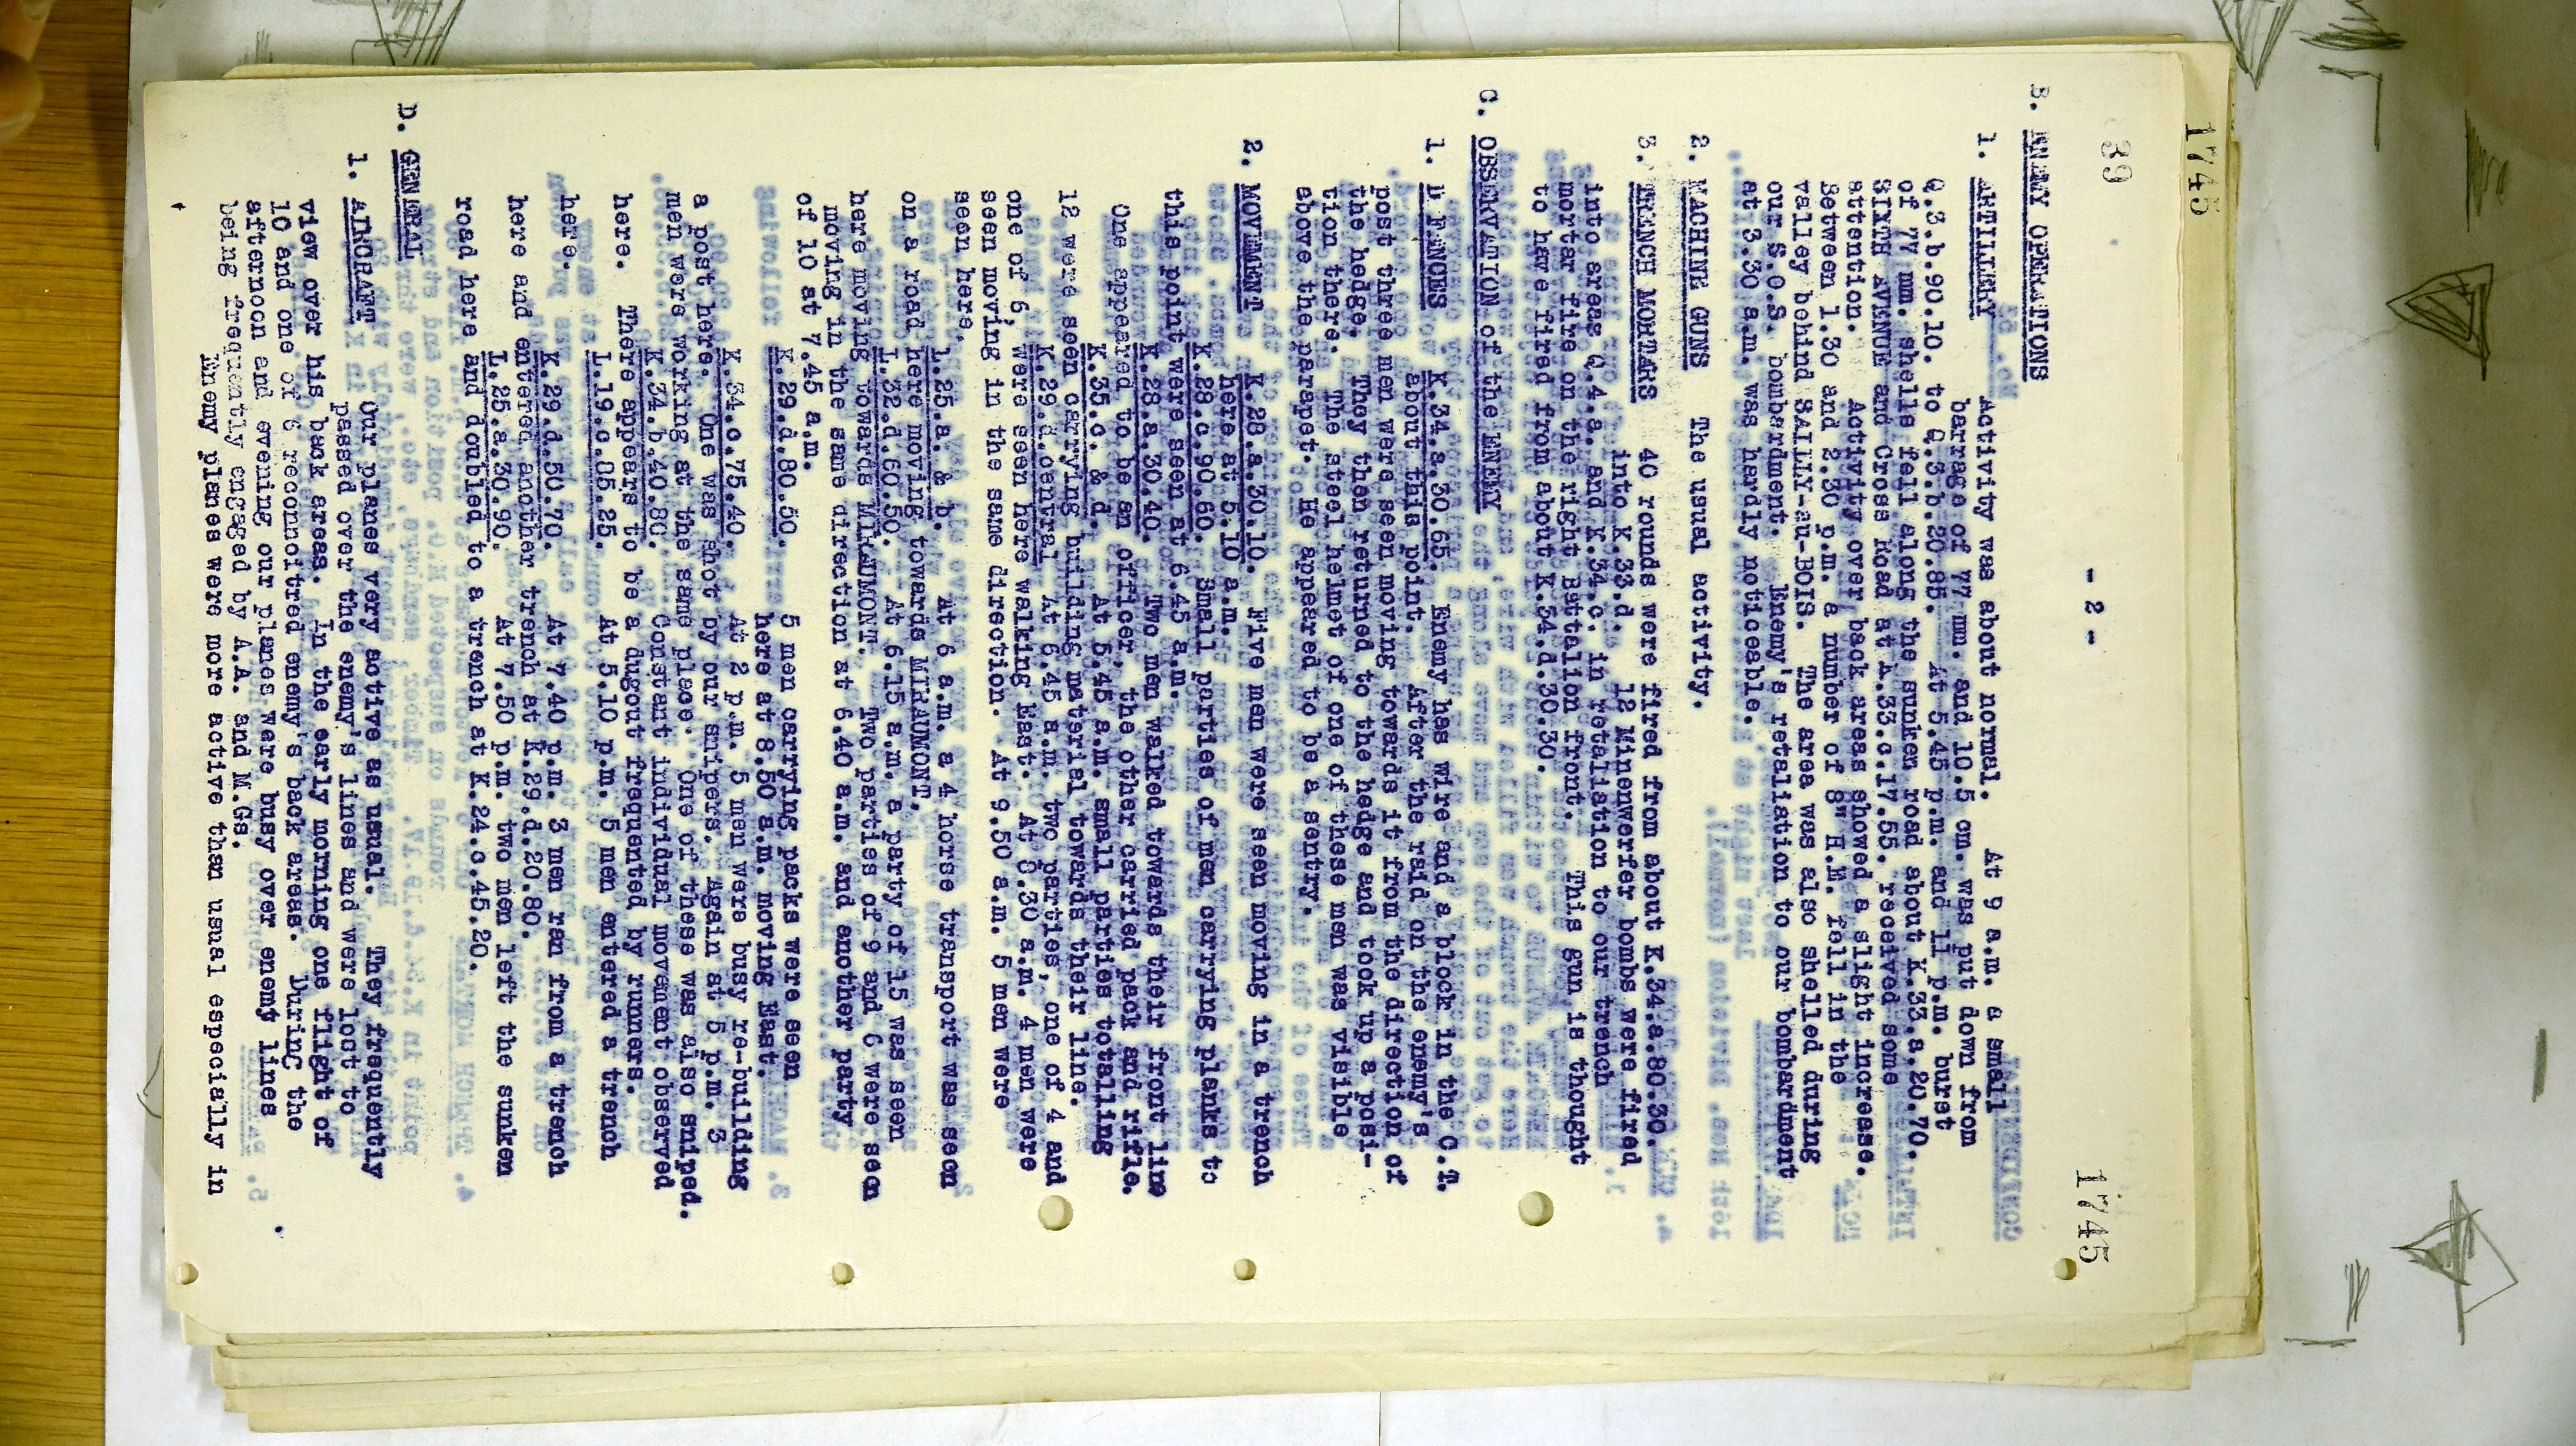 1745
39
1745
- 2 -
B. ENEMY OPERATIONS
1. ARTILLERY Activity was about normal. At 9 a.m. a small
barrage of 77 mm. and 10.5 cm. was put down from
Q.3.b.90.10. to Q.3.b.20.85. At 5.45 p.m. and 11 p.m. burst
of 77 mm. shells fell along the sunken road about K.33.a.20.70.
SIXTH AVENUE and Cross Road at A.33.c.17.55. received some
attention. Activity over back areas showed a slight increase.
Between 1.30 and 2.30 p.m. a number of 8" H.E. fell in the
valley behind SAILLY-au-BOIS. The area was also shelled during
our S.O.S. bombardment. Enemy's retaliation to our bombardment
at 3.30 a.m. was hardly noticeable.
2. MACHINE GUNS The usual activity.
3. TRENCH MORTARS 40 rounds were fired from about K.34.a.80.30.
into K.33.d. 12 Minenwerfer bombs were fired
into areas Q.4.a. and K.34.c. in retaliation to our trench
mortar fire on the right Battalion front. This gun is thought
to have fired from about K.34.d.30.30.
C. OBSERVATION of the ENEMY
1. DEFENCES K.34.a.30.65. Enemy has wire and a block in the C.T.
about this point. After the raid on the enemy's
post three men were seen moving towards it from the direction of
the hedge. They then returned to the hedge and took up a posi-
tion there. The steel helmet of one of these men was visible
above the parapet. He appeared to be a sentry.
2. MOVEMENT K.28.a.30.10. Five men were seen moving in a trench
here at 5.10 a.m.
K.28.c.90.60. Small parties of men carrying planks to
this point were seen at 6.45 a.m.
K.28.a.30.40. Two men walked towards their front line
One appeared to be an officer, the other carried pack and rifle.
K.35.c. & d. At 5.45 a.m. small parties totalling
12 were seen carrying building material towards their line.
K.29.d.central At 6.45 a.m. two parties, one of 4 and
one of 6, were seen here walking East. At 8.30 a.m. 4 men were
seen moving in the same direction. At 9.50 a.m. 5 men were
seen here.
L.25.a. & b. At 6 a.m. a 4 horse transport was seen
on a road here moving towards MIRAUMONT.
L.32.d.60.50. At 6.15 a.m. a party of 15 was seen
here moving towards MIRAUMONT. Two parties of 9 and 6 were seen
moving in the same direction at 6.40 a.m. and another party
of 10 at 7.45 a.m.
K.29.d.80.50. 5 men carrying packs were seen
here at 8.50 a.m. moving East.
K.34.c.75.40. At 2 p.m. 5 men were busy re-building
a post here. One was shot by our snipers. Again at 5 p.m. 3
men were working at the same place. One of these was also sniped.
K.34.b.40.80. Constant individual movement observed
here. There appears to be a dugout frequented by runners.
L.19.c.85.25. At 5.10 p.m. 5 men entered a trench
here.
K.29.d.50.70. At 7.40 p.m. 3 men ran from a trench
here and entered another trench at K.29.d.20.80.
L.25.a.30.90. At 7.50 p.m. two men left the sunken
road here and doubled to a trench at K.24.c.45.20.
D. GENERAL
1. AIRCRAFT Our planes very active as usual. They frequently
passed over the enemy's lines and were lost to
view over his back areas. In the early morning one flight of
10 and one of 6 reconnoitred enemy's back areas. During the
afternoon and evening our planes were busy over enemy lines
being frequently engaged by A.A. and M.Gs.
Enemy planes were more active than usual especially in